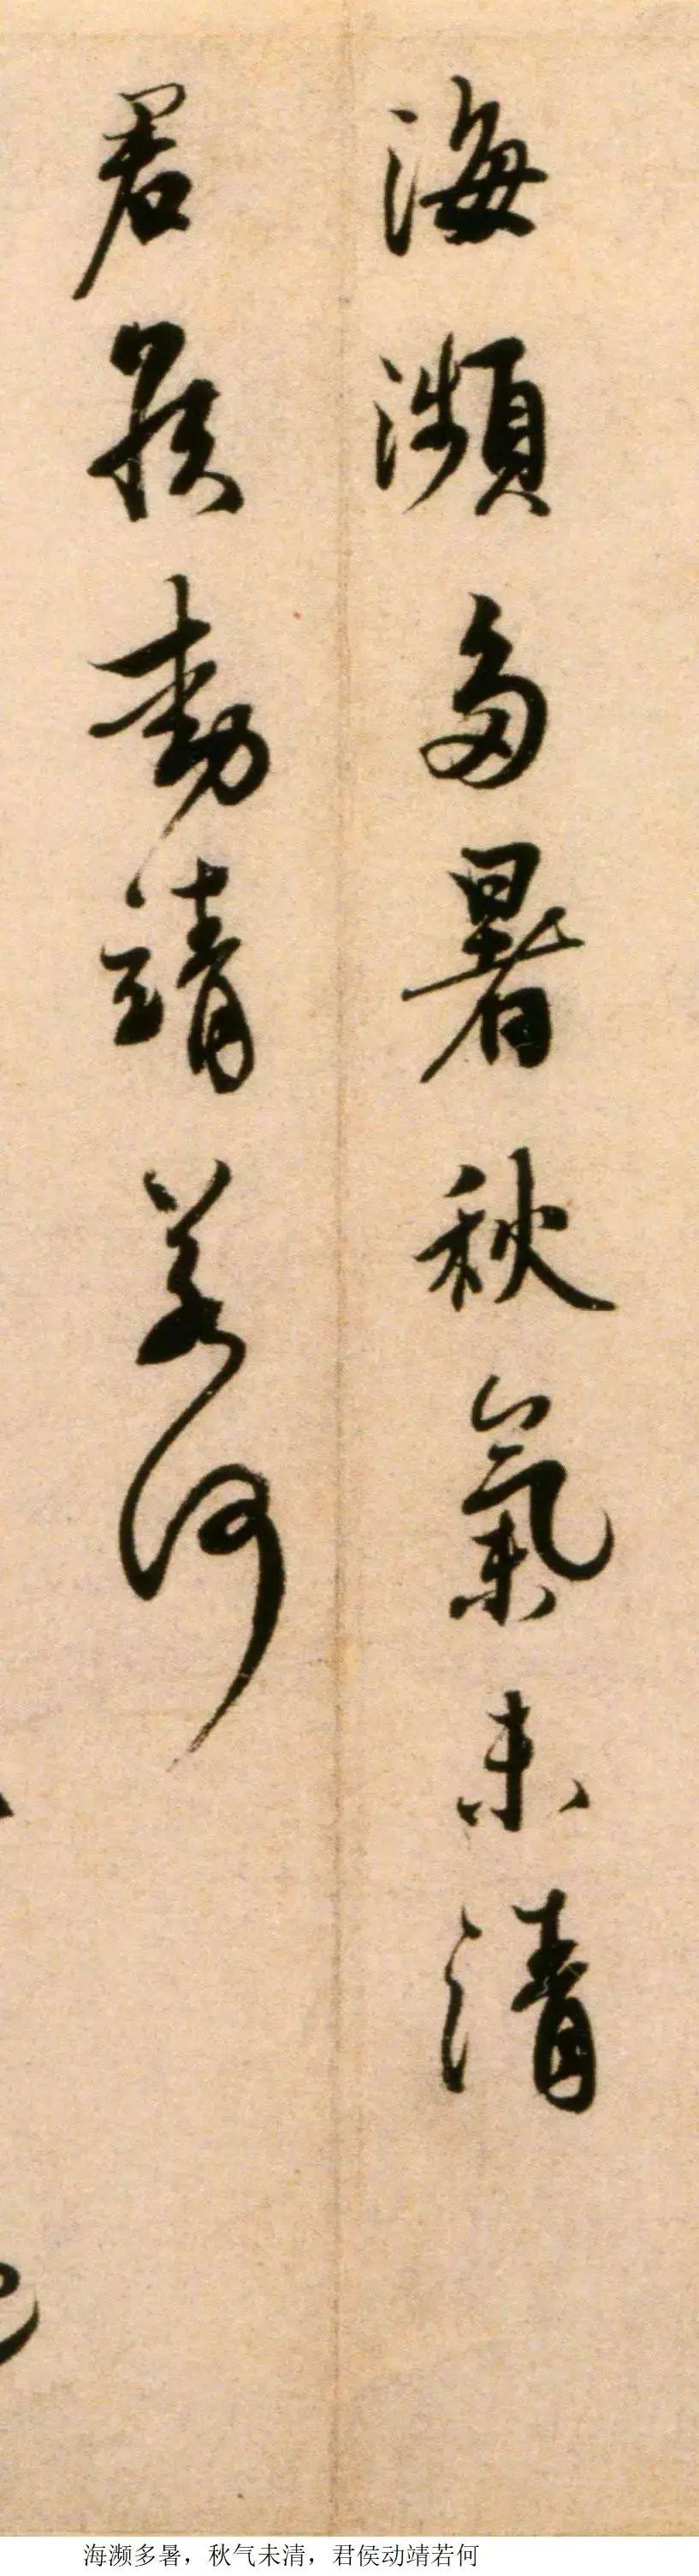 海瀕多暑秋氣未清
君侯動靖若何
海濒多暑，秋气未清，君侯动靖若何